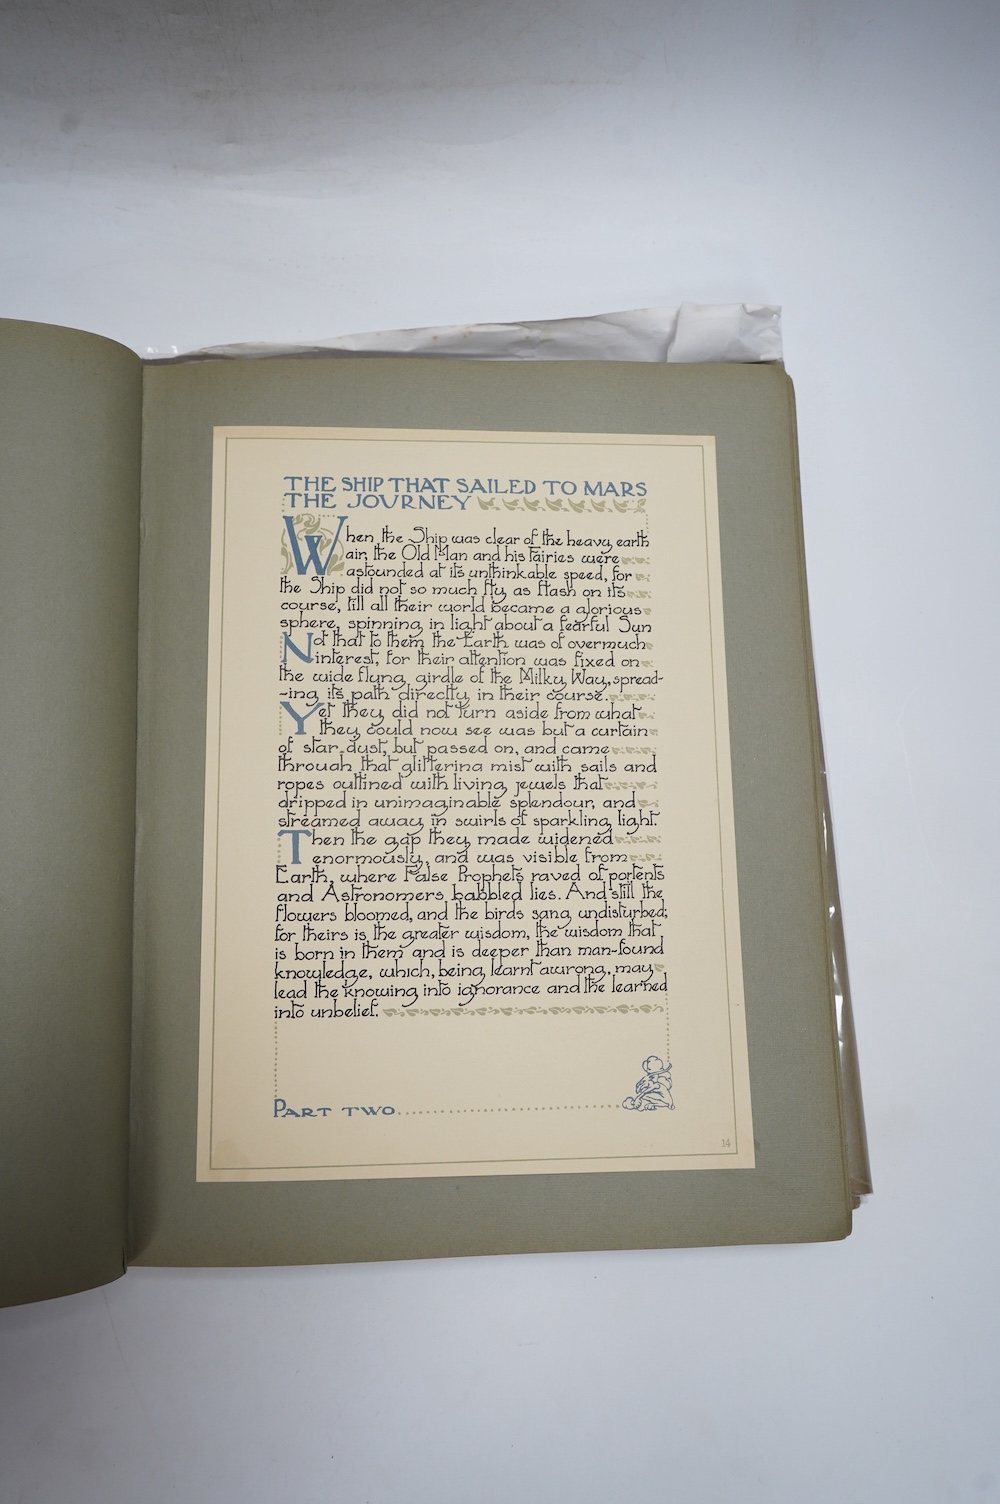 THE SHIP THAT SAILED TO MARS
THE JOURNEY
When the Ship was clear of the heavy earth
air, the Old Man and his Fairies were
astounded at its unthinkable speed, for
the Ship did not so much fly, as flash on its
course, till all their world became a glorious
sphere, spinning in light about a fearful Sun
Not that to them the Earth was of overmuch
interest, for their attention was fixed on
the wide flung girdle of the Milky Way, spread-
-ing its path directly in their course.
Yet they did not turn aside from what
they could now see was but a curtain
of star dust, but passed on, and came
through that glittering mist with sails and
ropes outlined with living jewels that
dripped in unimaginable splendour, and
streamed away in swirls of sparkling light.
Then the gap they made widened
enormously, and was visible from
Earth, where False Prophets raved of portents
and Astronomers babbled lies. And still the
flowers bloomed, and the birds sang undisturbed;
for theirs is the greater wisdom, the wisdom that
is born in them and is deeper than man-found
knowledge, which, being learnt awrong, may
lead the knowing into ignorance and the learned
into unbelief.
PART TWO
14